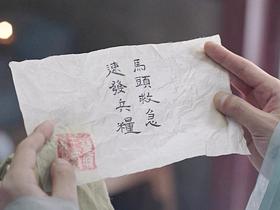 馬頭救急
速發兵糧